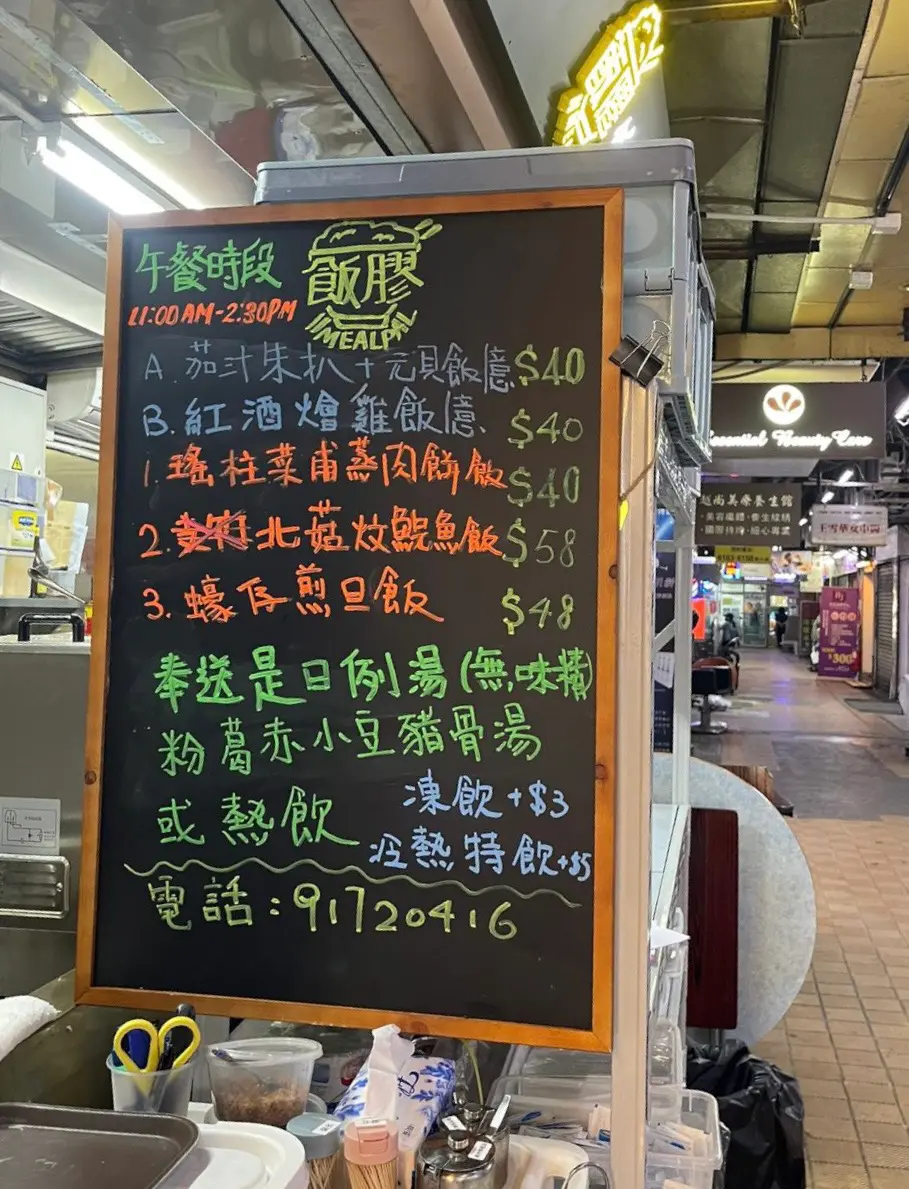 午餐時段
11:00AM-2:30PM
飯膠
MEALPAL
A.茄汁朱扒+元貝飯意 $40
B.紅酒燴雞飯意 $40
1.瑤柱菜甫蒸肉餅飯 $40
2.北菇炆鯇魚飯 $58
3.蠔仔煎旦飯 $48
奉送是日例湯(無味精)
粉葛赤小豆豬骨湯
或熱飲
凍飲+$3
冷熱特飲+$5
電話:91720416
Essential Beauty Care
美容纖體·養生紋綉
$300